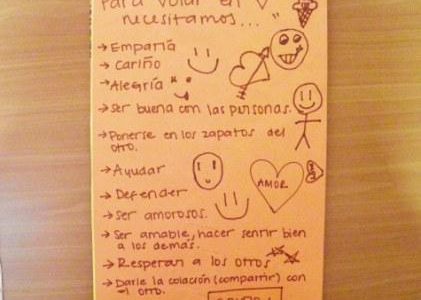 Para volar en V
necesitamos..."
→ Empatía
→ Cariño
→ Alegría
→ Ser buena con las personas.
→ Ponerse en los zapatos del
otro.
→ Ayudar
AMOR
→ Defender
→ Ser amorosos.
→ Ser amable, hacer sentir bien
a los demás.
→ Respetar a los otros
→ Darle la colación (compartir) con
el otro.